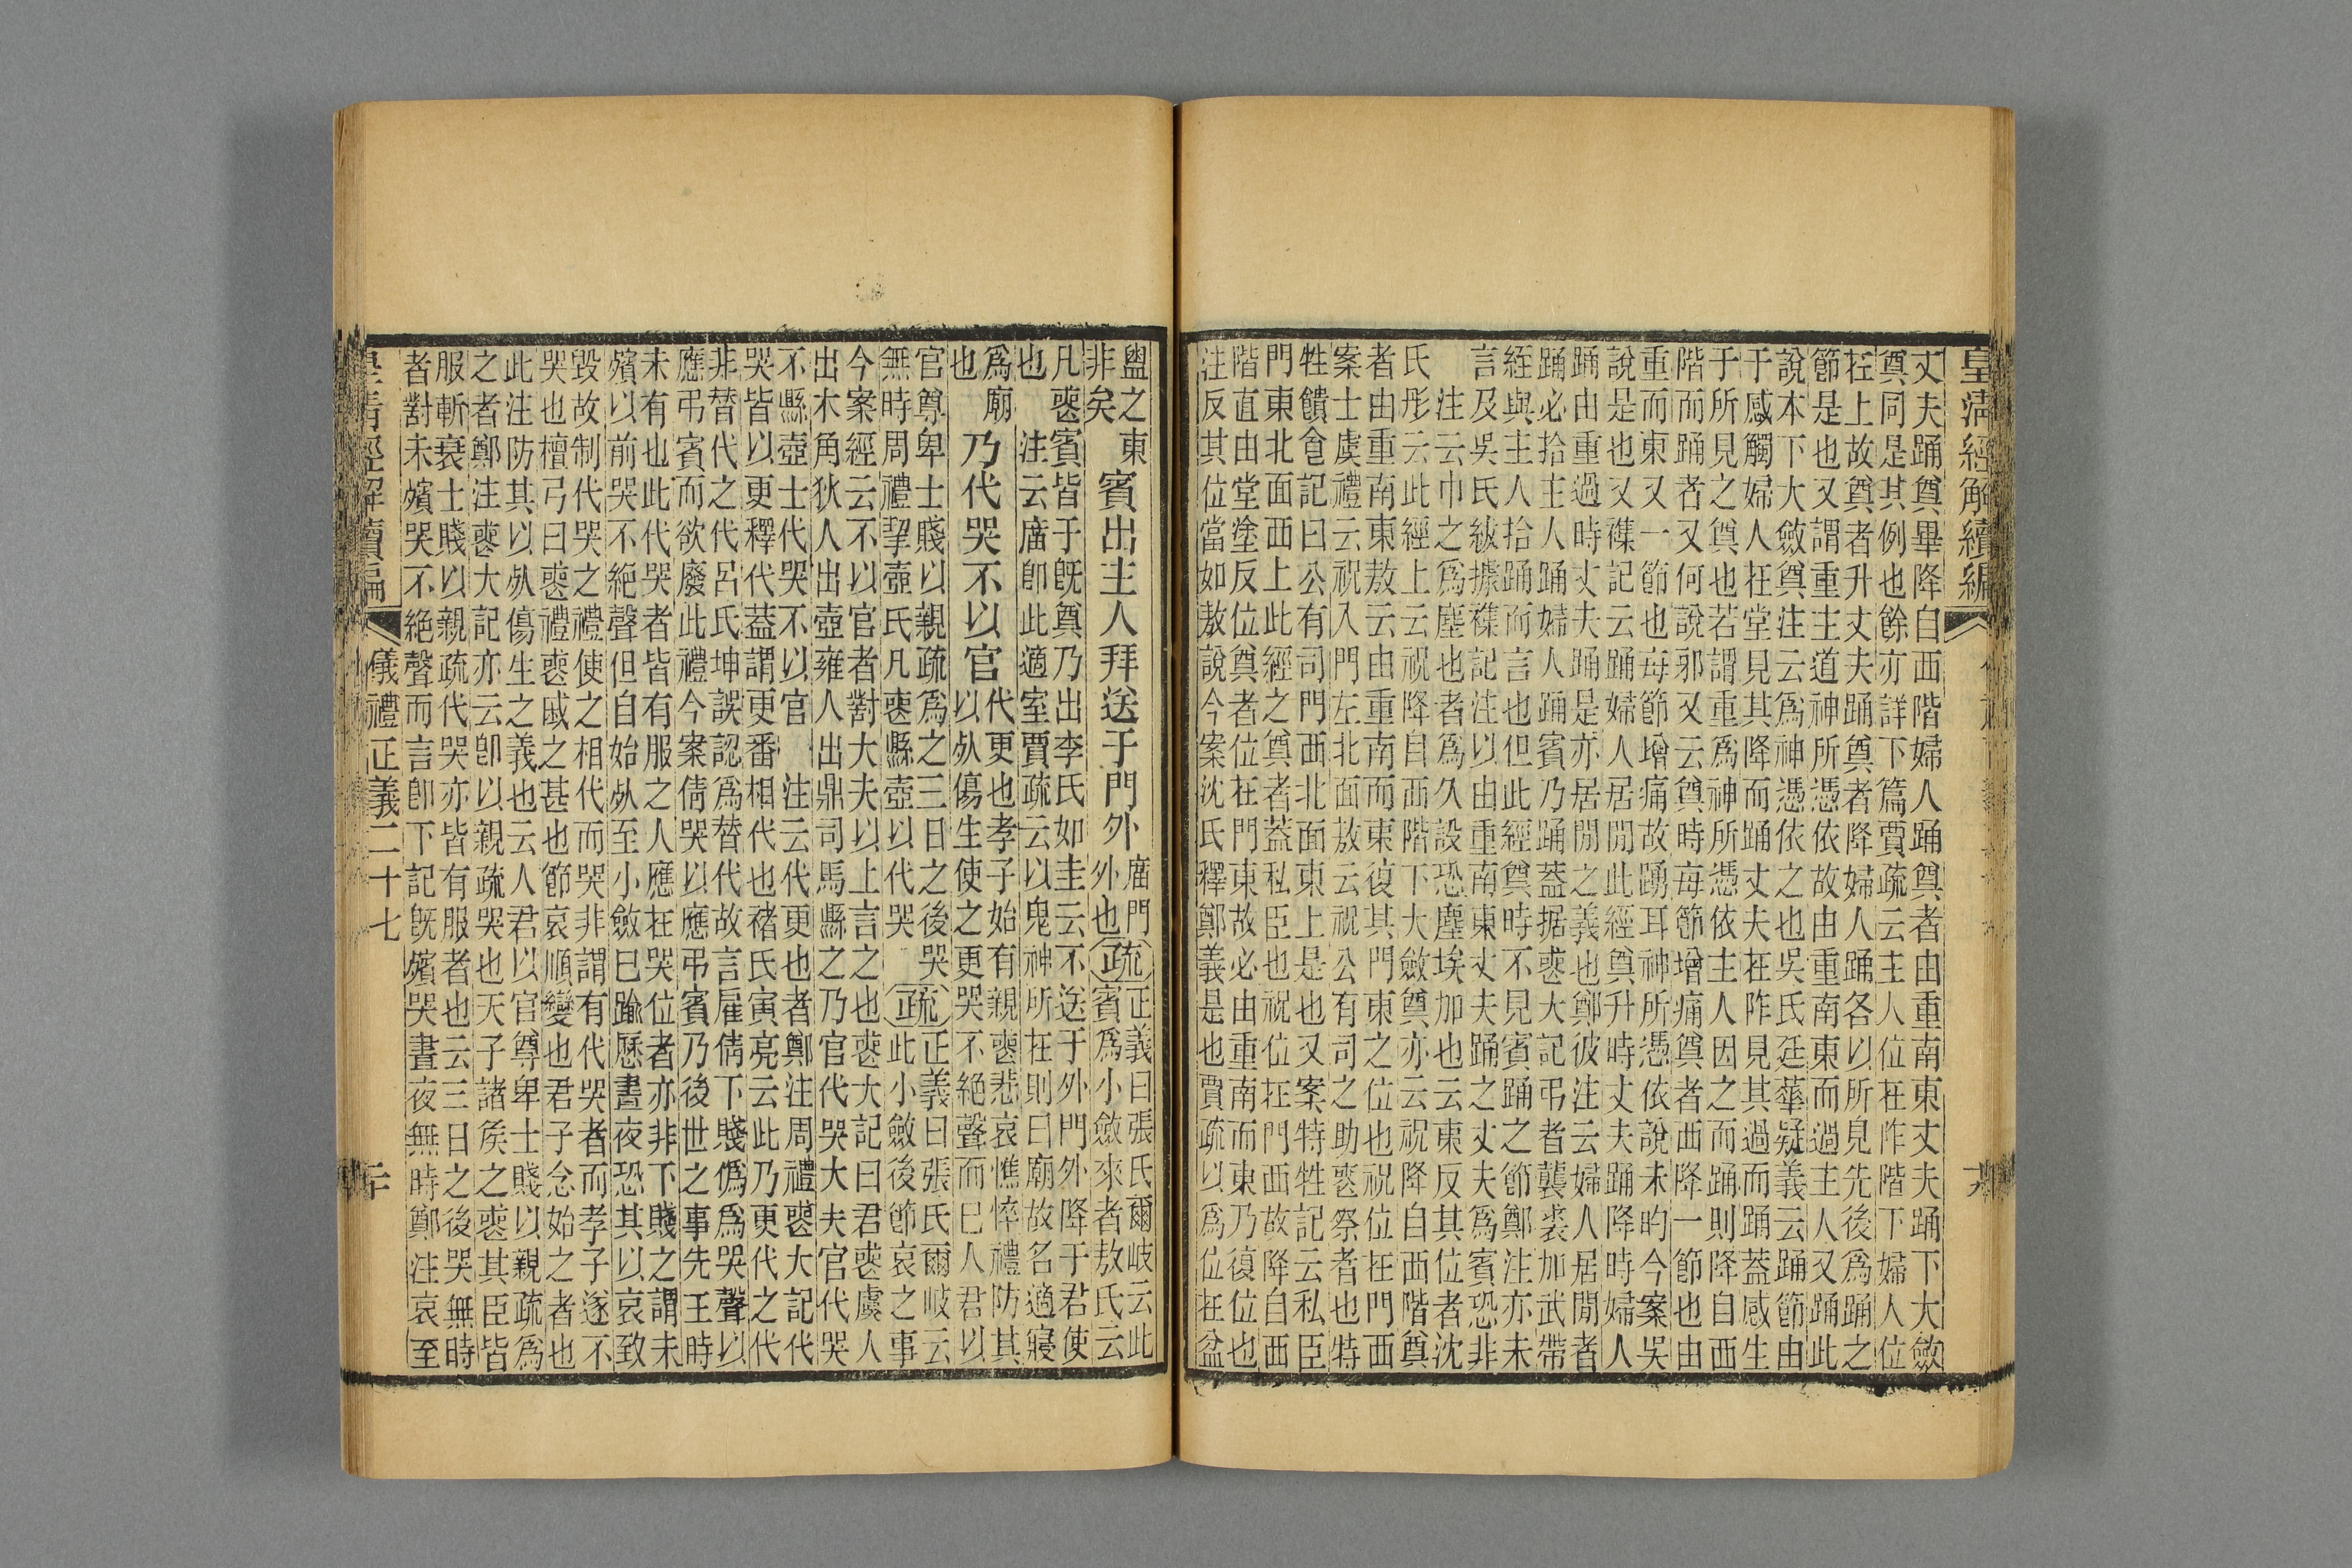 皇清經解續編
丈夫踊奠畢降自西階婦人踊奠者由重南東丈夫踊下大斂
奠同是其例也餘亦詳下篇賈疏云主人位在阼階下婦人位
在上故奠者升丈夫踊奠者降婦人踊各以所見先後爲踊之
節是也又謂重主道神所憑依故由重南東而過主人又踊此
說本下大斂奠注云爲神憑依之也吳氏廷華疑義云踊節由
于感觸婦人在堂見其降而踊丈夫在阼見其過而踊蓋感生
于所見之奠也若謂重爲神所憑依主人因之而踊則降自西
階而踊者又何說邪又云奠時每節增痛奠者西降一節也由
重而東又一節也每節增痛故踴耳神所憑依說未昀今案吳
說是也又襍記云踊婦人居閒此經奠升時丈夫踊降時婦人
踊由重過時丈夫踊是亦居閒之義也鄭彼注云婦人居閒者
踊必拾主人踊婦人踊賓乃踊蓋据喪大記弔者襲裘加武帶
絰與主人拾踊而言也但此經奠時不見賓踊之節鄭注亦未
言及吳氏紱據襍記注以由重南東丈夫踊之丈夫爲賓恐非
注云巾之爲塵也者爲久設恐塵埃加也云東反其位者沈
氏彤云此經上云祝降自西階下大斂奠亦云祝降自西階奠
者由重南東敖云由重南而東復其門東之位也祝位在門西
案士虞禮云祝入門左北面敖云祝公有司之助喪祭者也特
牲饋食記曰公有司門西北面東上是也又案特牲記云私臣
門東北面西上此經之奠者蓋私臣也祝位在門西故降自西
階直由堂塗反位奠者位在門東故必由重南而東乃復位也
注反其位當如敖說今案沈氏釋鄭義是也賈疏以爲位在盆
盥之東
非矣
賓出主人拜送于門外
廟門
外也
疏
正義曰張氏爾岐云此
賓爲小斂來者敖氏云
凡喪賓皆于旣奠乃出李氏如圭云不送于外門外降于君使
也 注云廟卽此適室賈疏云以鬼神所在則曰廟故名適寢
爲廟
也
乃代哭不以官
代更也孝子始有親喪悲哀憔悴禮防其
以死傷生使之更哭不絕聲而已人君以
官尊卑士賤以親疏爲之三日之後哭
無時周禮挈壺氏凡喪縣壺以代哭
疏
正義曰張氏爾岐云
此小斂後節哀之事
今案經云不以官者對大夫以上言之也喪大記曰君喪虞人
出木角狄人出壺雍人出鼎司馬縣之乃官代哭大夫官代哭
不縣壺士代哭不以官 注云代更也者鄭注周禮喪大記代
哭皆以更釋代蓋謂更番相代也褚氏寅亮云此乃更代之代
非替代之代呂氏坤誤認爲替代故言雇倩下賤僞爲哭聲以
應弔賓而欲廢此禮今案倩哭以應弔賓乃後世之事先王時
未有也此代哭者皆有服之人應在哭位者亦非下賤之謂未
殯以前哭不絕聲但自始死至小斂已踰厯晝夜恐其以哀致
毀故制代哭之禮使之相代而哭非謂有代哭者而孝子遂不
哭也檀弓曰喪禮喪戚之甚也節哀順變也君子念始之者也
此注防其以死傷生之義也云人君以官尊卑士賤以親疏爲
之者鄭注喪大記亦云卽以親疏哭也天子諸矦之喪其臣皆
服斬衰士賤以親疏代哭亦皆有服者也云三日之後哭無時
者對未殯哭不絕聲而言卽下記旣殯哭晝夜無時鄭注哀至
皇清經解續編
儀禮正義二十七